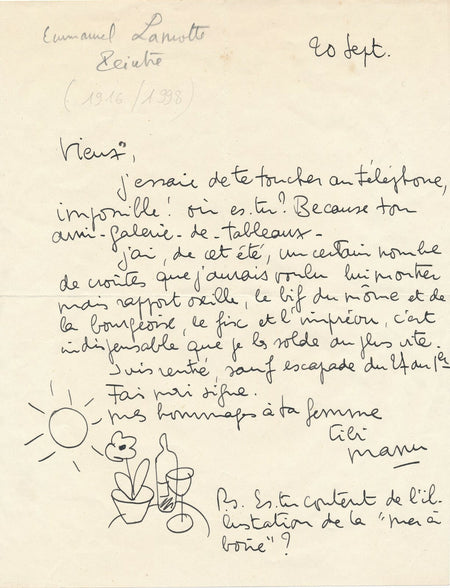 Emmanuel Lamotte
Peintre
(1916/1998)
20 Sept.
Vieux,
j'essaie de te toucher au téléphone,
impossible! où es-tu? Because ton
ami-galerie-de-tableaux-
j'ai, de cet été, un certain nombre
de croûtes que j'aurais voulu lui montrer
mais rapport oseille, le bif du môme et de
la bourgeoise, le fisc et l'impréou, c'est
indispensable que je les solde au plus vite.
Suis rentré, sauf escapade du 27 au 1er
Fais moi signe.
mes hommages à ta femme
Tibi
manu
Ps. Es-tu content de l'il-
lustration de la "mer à
boire"?